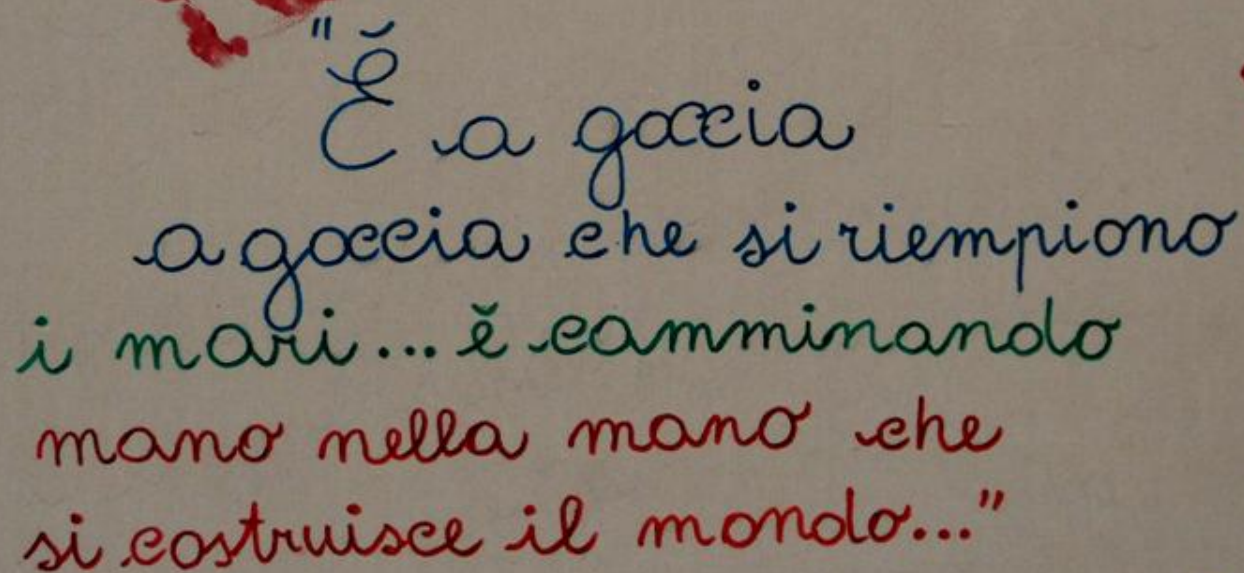 "È a goccia
a goccia che si riempiono
i mari... è camminando
mano nella mano che
si costruisce il mondo..."